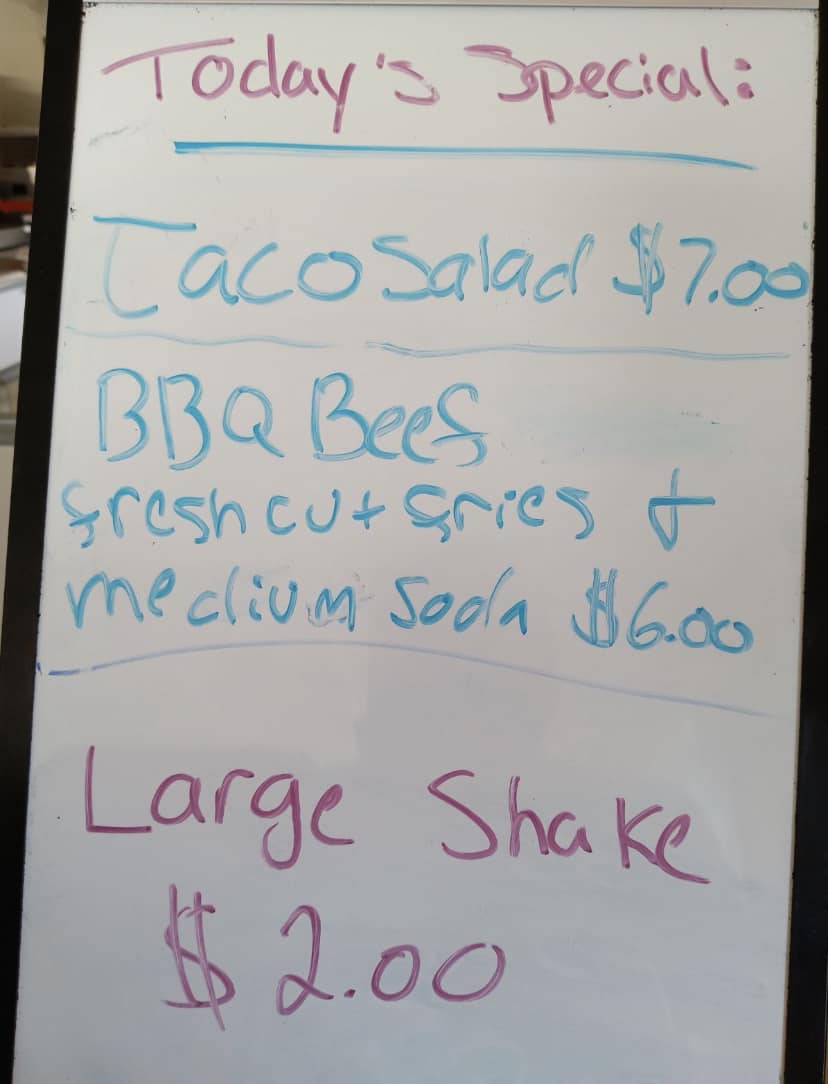 Today's Special:
Taco Salad $7.00
BBQ Beef
fresh cut fries &
medium soda $6.00
Large Shake
$2.00